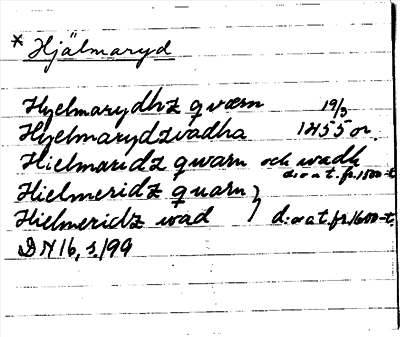 * Hjälmaryd
Hyelmarydhz qværn 19/3
Hyelmarydzvadha 1455 or.
Hielmaridz qwarn och wadh
d:o a t. fr. 1500-t
Hielmeridz quarn }
Hielmeridz wad } d:o a t. fr. 1600-t.
DN 16, s. 199